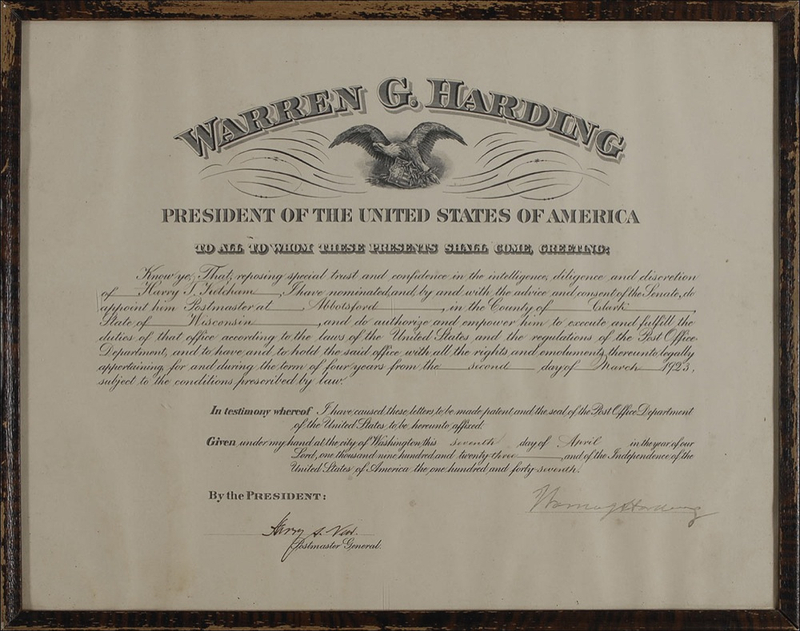 WARREN G. HARDING
PRESIDENT OF THE UNITED STATES OF AMERICA
TO ALL TO WHOM THESE PRESENTS SHALL COME, GREETING:
Know ye, That, reposing special trust and confidence in the intelligence, diligence and discretion
of Harry J. Ketcham, I have nominated, and, by and with the advice and consent of the Senate, do
appoint him Postmaster at Abbotsford, in the County of Clark,
State of Wisconsin, and do authorize and empower him to execute and fulfill the
duties of that office according to the laws of the United States and the regulations of the Post Office
Department, and to have and to hold the said office, with all the rights and emoluments thereunto legally
appertaining, for and during the term of four years from the second day of March 1923,
subject to the conditions prescribed by law.
In testimony whereof I have caused these letters to be made patent, and the seal of the Post Office Department
of the United States to be hereunto affixed.
Given under my hand at the city of Washington this seventh day of April in the year of our
Lord, one thousand nine hundred and twenty three, and of the Independence of the
United States of America the one hundred and forty-seventh.
By the PRESIDENT:
Warren G Harding
Harry S. New.
Postmaster General.